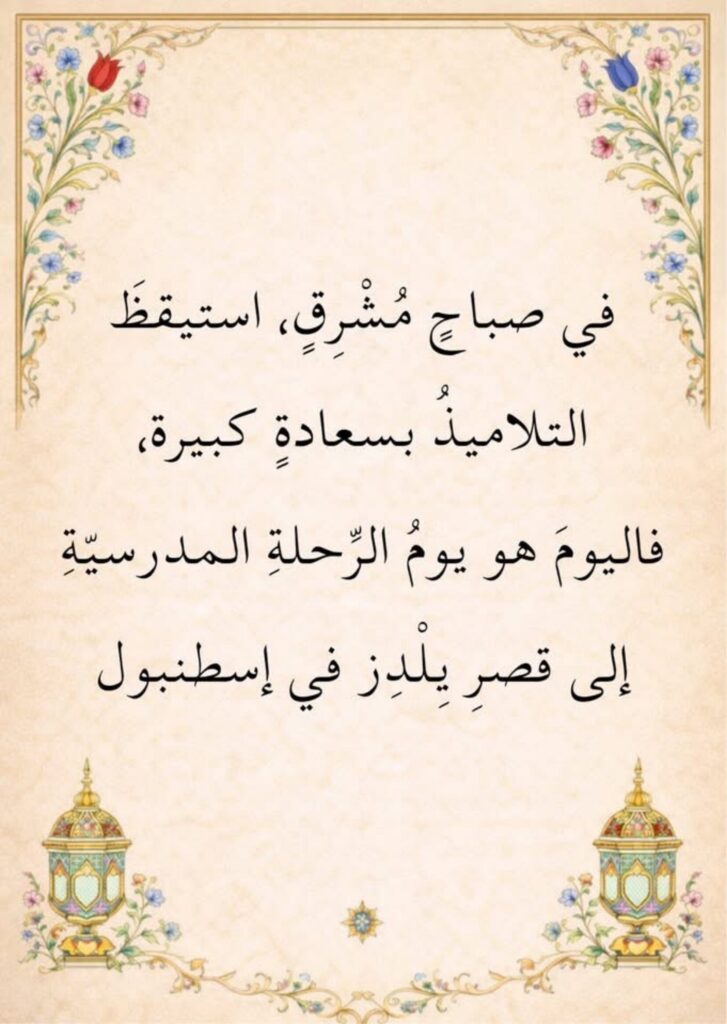 في صباحٍ مُشْرِقٍ، استيقظَ
التلاميذُ بسعادةٍ كبيرة،
فاليومَ هو يومُ الرِّحلةِ المدرسيّةِ
إلى قصرِ يِلْدِز في إسطنبول